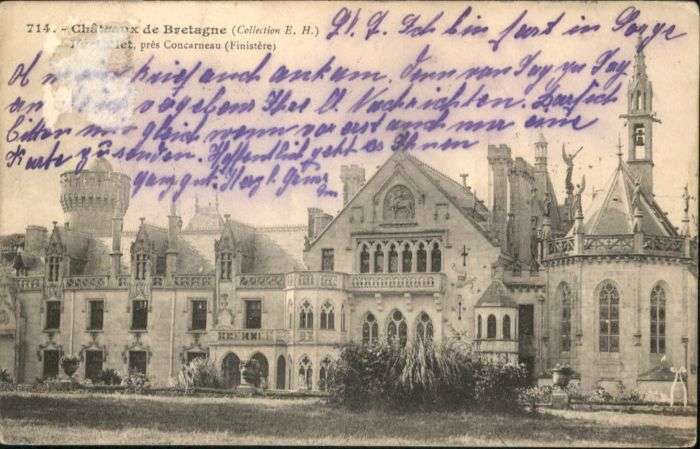 714. - Châteaux de Bretagne (Collection E. H.)
let, près Concarneau (Finistère)
Ich bin fast in Sorge
ob mein Brief auch ankam. Denn von Tag zu Tag
vergebens Ihre Nachrichten. Darf ich
bitten mir gleich wenn vorerst auch nur eine
Karte zu senden. Hoffentlich geht es Ihnen
ganz gut. Herzl. Grüsse